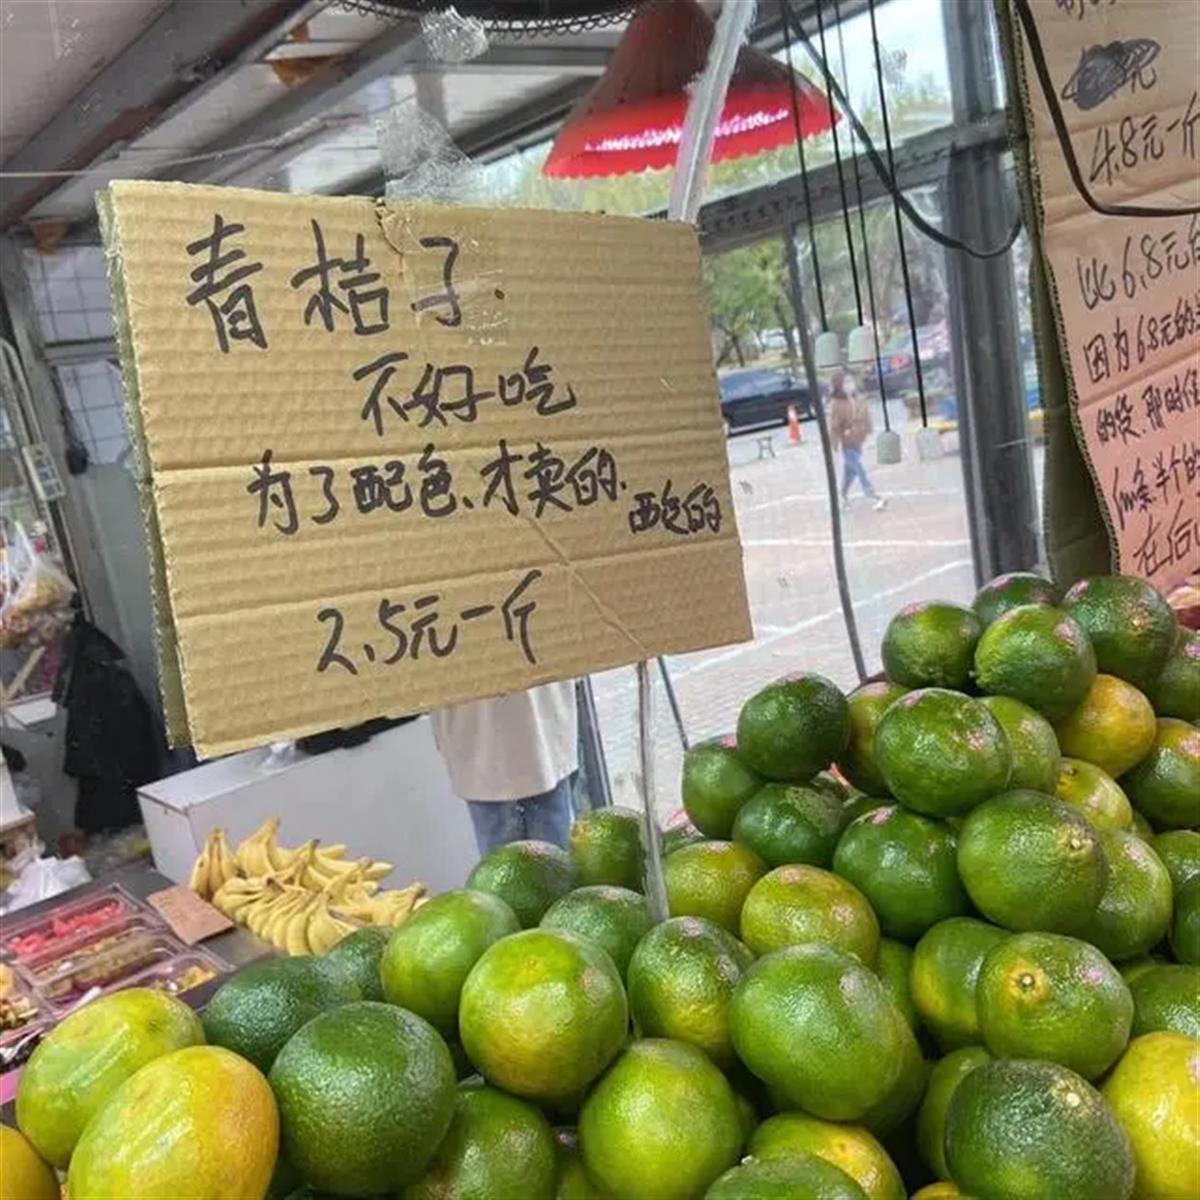 青桔子.
不好吃
为了配色、才卖的.
配色的
2.5元一斤
元
4.8元一斤
比6.8元
因为6.8元的
的货.那时
在